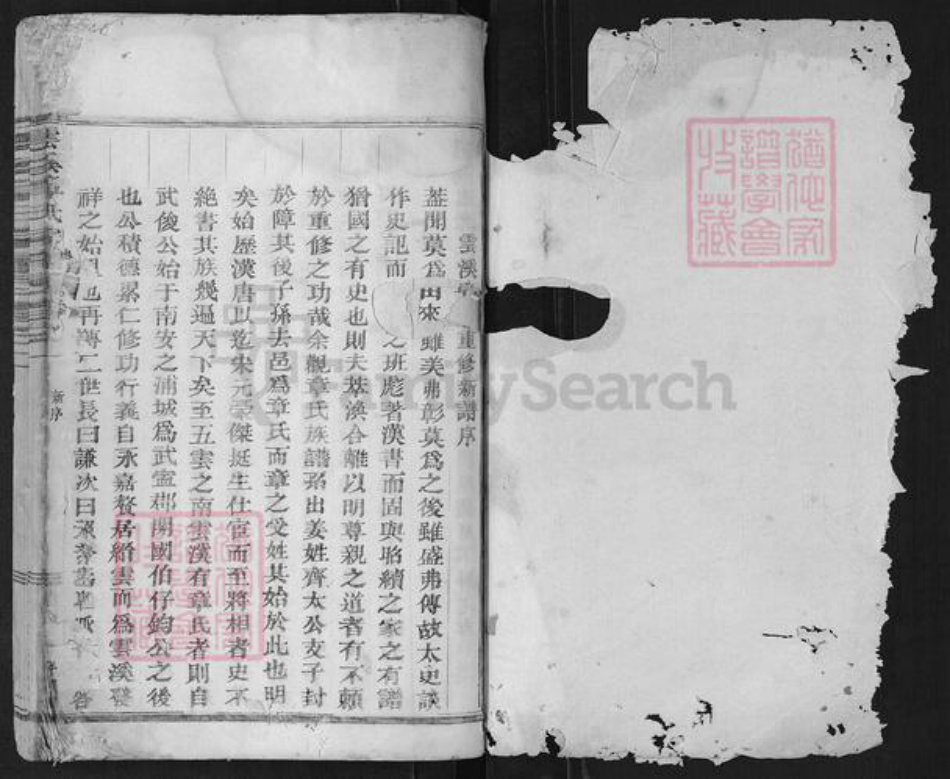 雲溪章 重修新譜序
蓋聞莫爲 由來 雖美弗彰莫爲之後雖盛弗傳故太史談
作史記而 之班彪著漢書而固與昭續之家之有譜
猶國之有史也則夫萃渙合離以明尊親之道者有不賴
於重修之功哉余觀章氏族譜系出姜姓齊太公支子封
於障其後子孫去邑爲章氏而章之受姓其始於此也明
矣始歷漢唐以迄宋元榮傑挺生仕宦而至將相者史不
絕書其族幾遍天下矣至五雲之南雲溪有章氏者則自
武俊公始于南安之浦城爲武寧郡開國伯仔鈞公之後
也公積德累仁修功行義自永嘉贅居縉雲而爲雲溪發
祥之始祖也再傳二世長曰謙次曰
新序
猶他家譜學會收藏
FamilySearch